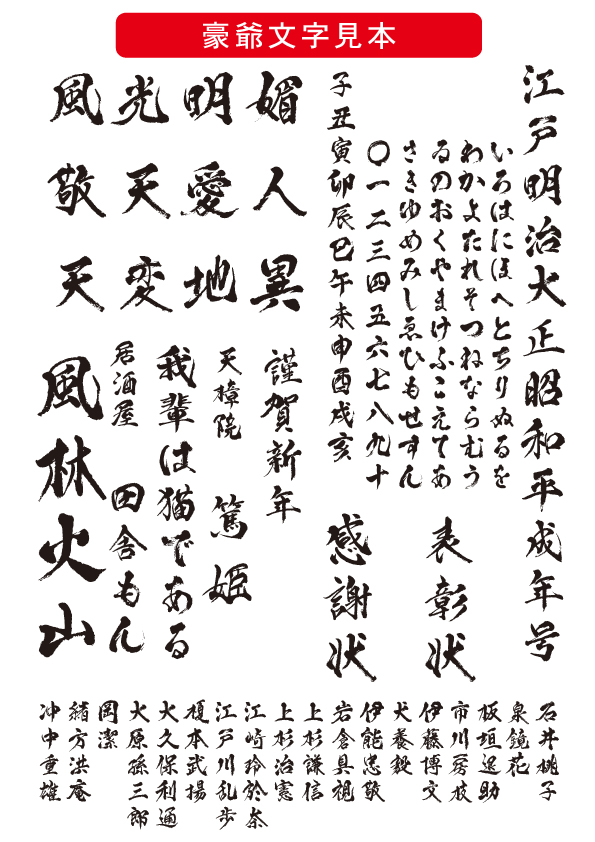 豪爺文字見本
江戸明治大正昭和平成年号
いろはにほへとちりぬるを
わかよたれそつねならむう
ゐのおくやまけふこえてあ
さきゆめみしゑひもせすん
〇一二三四五六七八九十
子丑寅卯辰巳午未申酉戌亥
表彰状
感謝状
媚人異
明愛地
光天変
風敬天
謹賀新年
天樟院 篤姫
我輩は猫である
居酒屋 田舎もん
風林火山
石井桃子
泉鏡花
板垣退助
市川房枝
伊藤博文
犬養毅
伊能忠敬
岩倉具視
上杉謙信
上杉治憲
江崎玲於奈
江戸川乱歩
榎本武揚
大久保利通
大原孫三郎
岡潔
緒方洪庵
沖中重雄